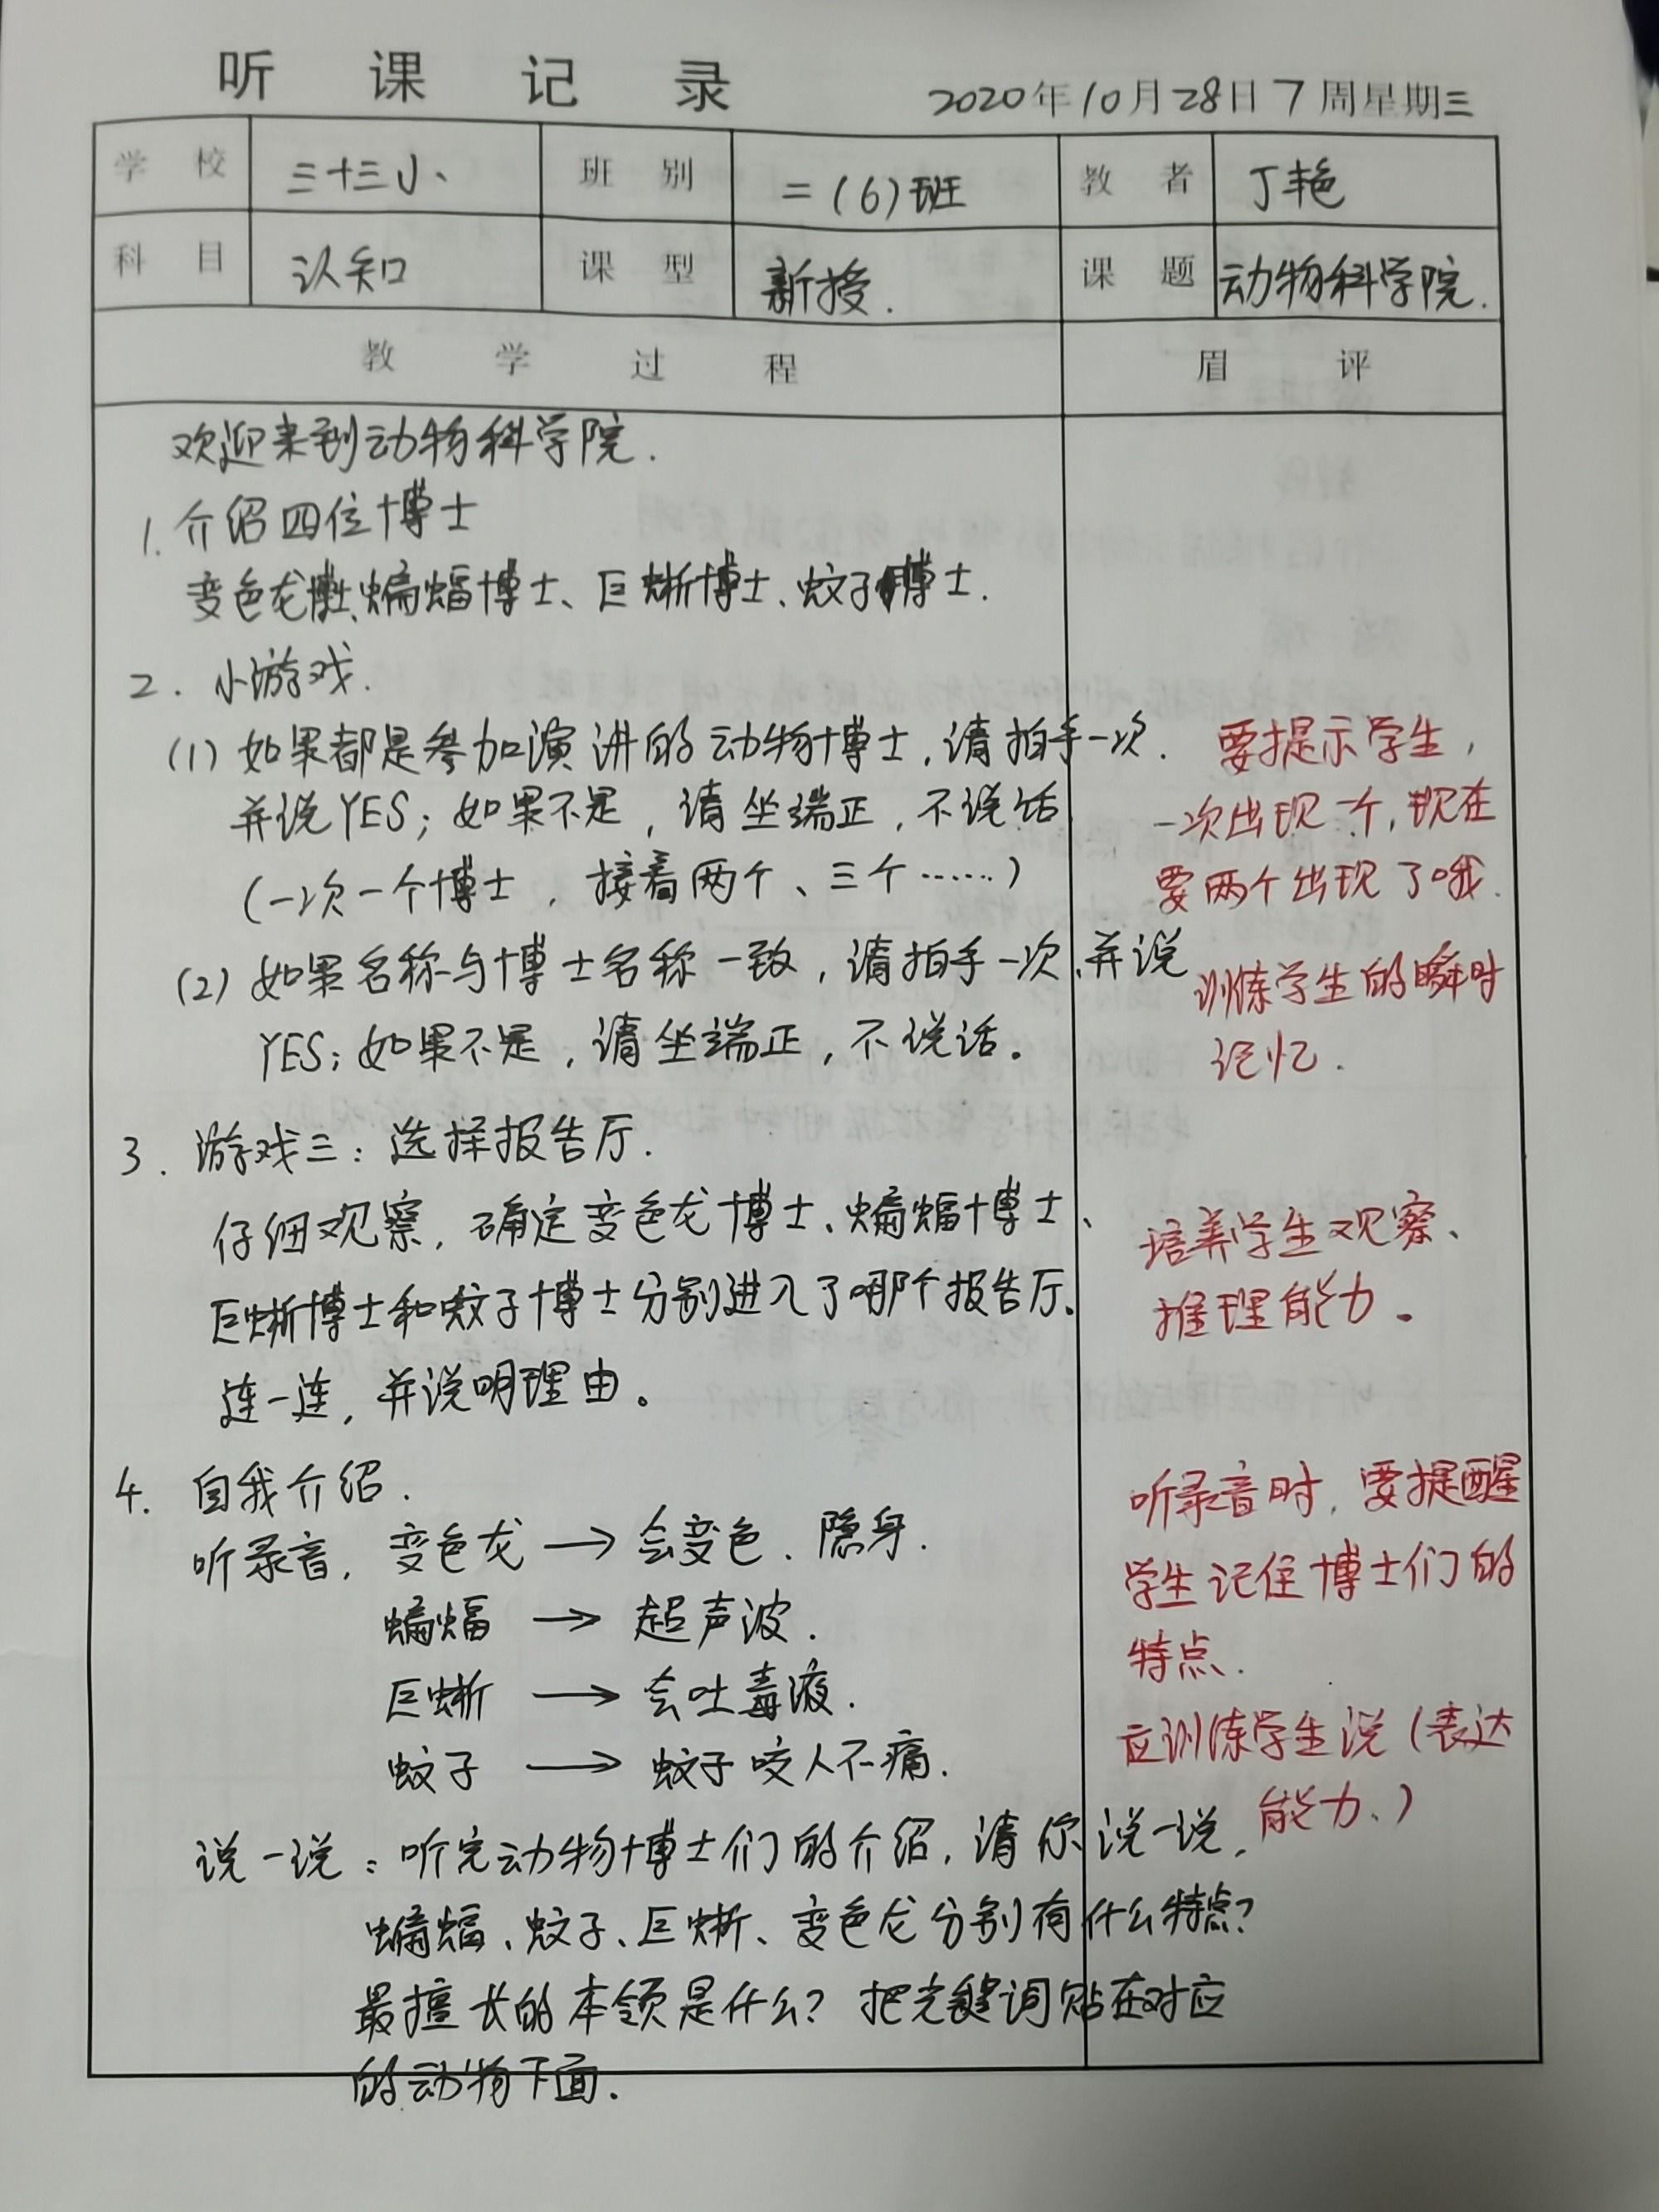 听课记录
2020年10月28日7周星期三
学校 三十三小 班别 二(6)班 教者 丁艳
科目 认知 课型 新授. 课题 动物科学院.
教学过程 眉评
欢迎来到动物科学院.
1. 介绍四位博士
变色龙博士、蝙蝠博士、巨蜥博士、蚊子博士.
2. 小游戏.
(1) 如果都是参加演讲的动物博士,请拍手一次.
并说YES;如果不是,请坐端正,不说话
(一次一个博士,接着两个、三个……)
要提示学生,
一次出现一个,现在
要两个出现了哦.
(2) 如果名称与博士名称一致,请拍手一次,并说
YES;如果不是,请坐端正,不说话。
训练学生的瞬时
记忆.
3. 游戏三:选择报告厅.
仔细观察,确定变色龙博士、蝙蝠博士、
巨蜥博士和蚊子博士分别进入了哪个报告厅。
连一连,并说明理由。
培养学生观察、
推理能力。
4. 自我介绍.
听录音,变色龙→会变色、隐身.
蝙蝠→超声波.
巨蜥→会吐毒液.
蚊子→蚊子咬人不痛.
听录音时,要提醒
学生记住博士们的
特点.
应训练学生说(表达
能力、)
说一说:听完动物博士们的介绍,请你说一说,
蝙蝠、蚊子、巨蜥、变色龙分别有什么特点?
最擅长的本领是什么?把关键词贴在对应
的动物下面.